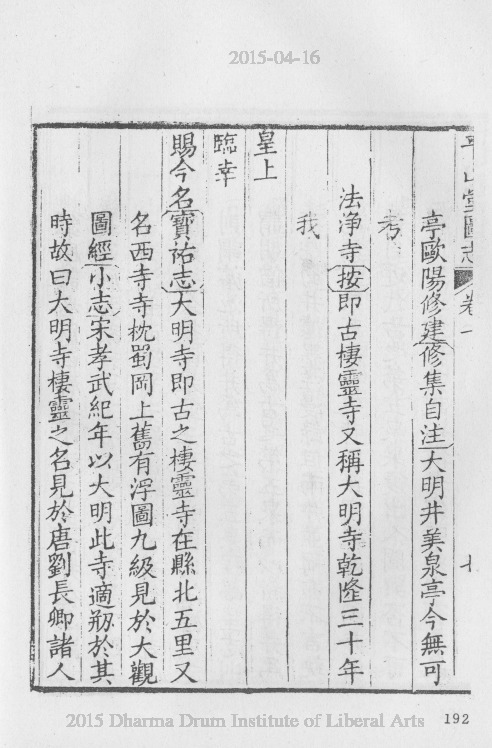 2015-04-16
平山堂圖志 卷一
亭歐陽修建修集自注大明井美泉亭今無可
考
法淨寺按即古棲靈寺又稱大明寺乾隆三十年
我
皇上
臨幸
賜今名寶祐志大明寺即古之棲靈寺在縣北五里又
名西寺寺枕蜀岡上舊有浮圖九級見於大觀
圖經小志宋孝武紀年以大明此寺適剏於其
時故曰大明寺棲靈之名見於唐劉長卿諸人
192
2015 Dharma Drum Institute of Liberal Arts